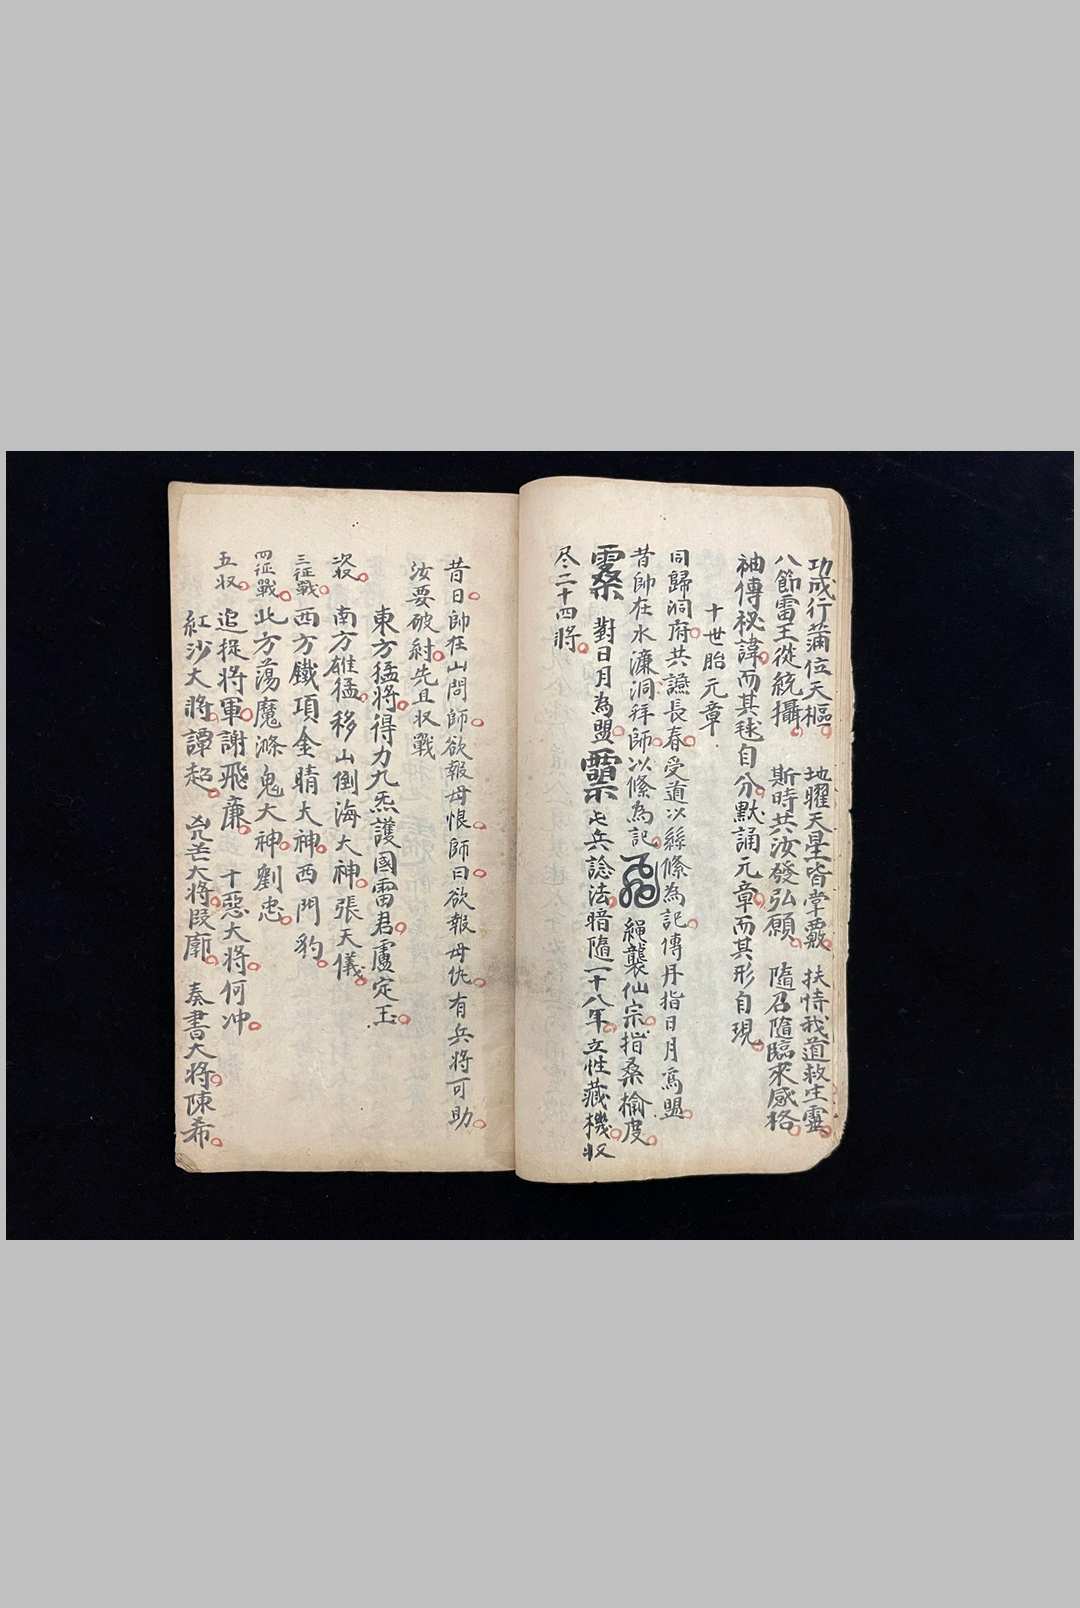 功成行滿位天樞 地曜天星皆掌覈 扶恃我道救生靈
八節雷王從統攝 斯時共汝發弘願 隨召隨臨來感格
袖傳祕諱而其毬自分默誦元章而其形自現
十世胎元章
同歸洞府共讌長春受道以絲絛為記傳丹指日月為盟
昔帥在水濂洞拜師以絛為記 繩襲仙宗指桑榆度
對日月為盟 七兵諗法暗隨一十八年立性藏機収
尽二十四將
昔日帥在山問師欲報母恨師曰欲報母仇有兵將可助
汝要破紂先且収戰
東方猛將得力九炁護國雷君盧定玉
次収 南方雄猛移山倒海大神張天儀
三征戰 西方鐵項金睛大神西門豹
四征戰 北方蕩魔滌鬼大神劉忠
五収 追捉將軍謝飛廉 十惡大將何冲
紅沙大將譚超 兇芒大將段廓 奏書大將陳希